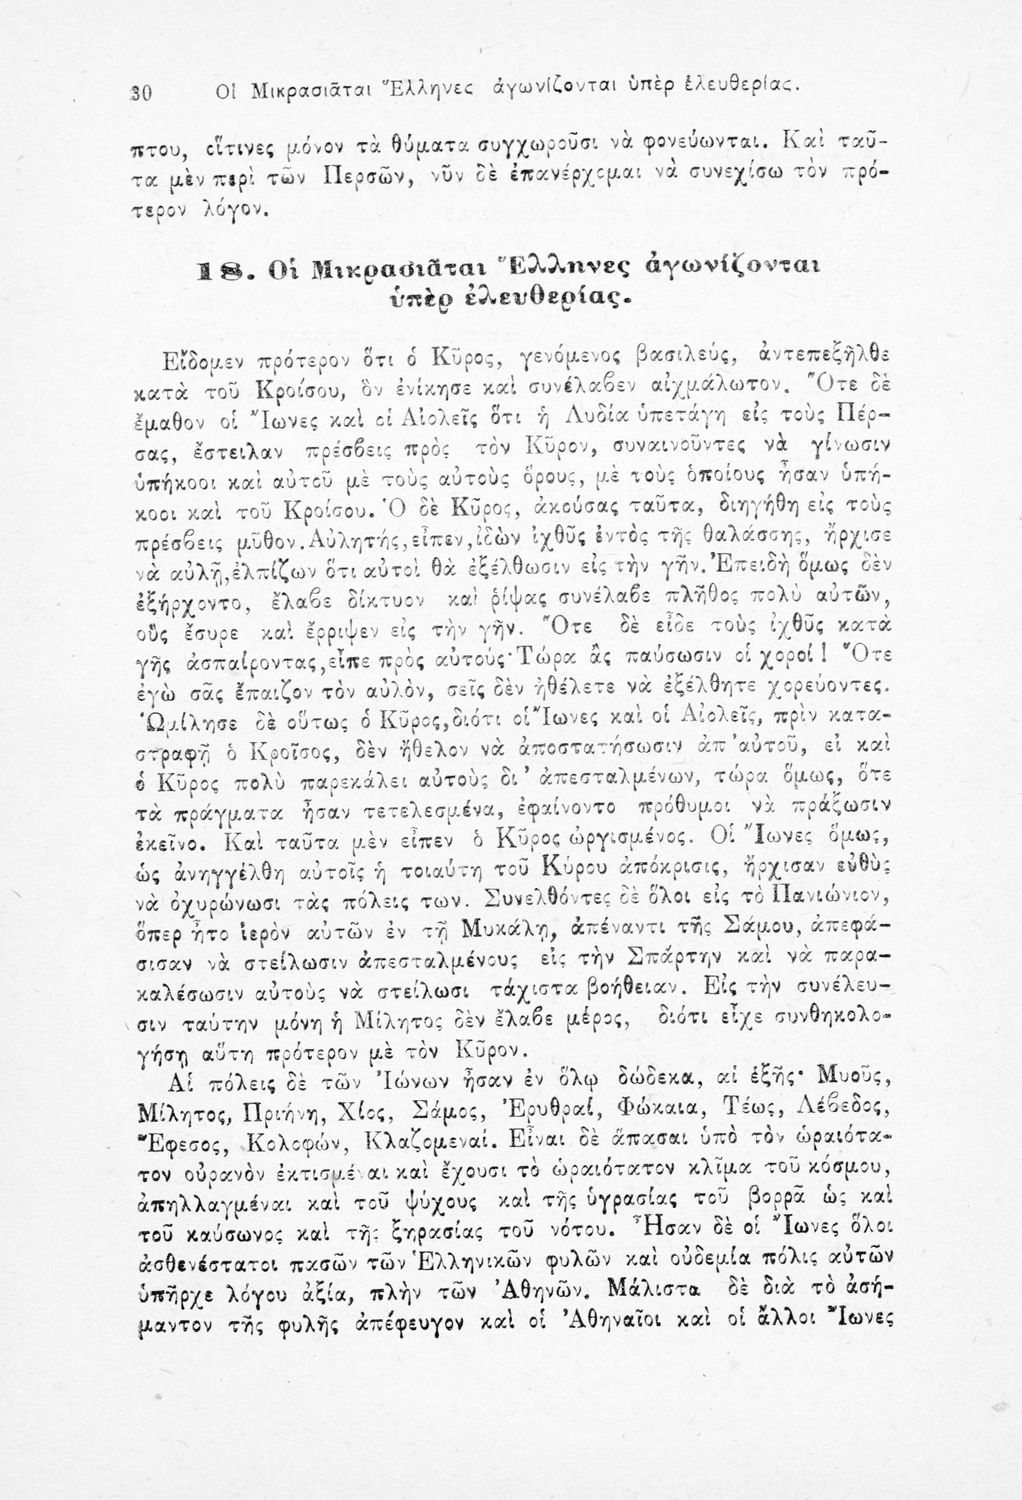 30 Οἱ Μικρασιᾶται Ἕλληνες ἀγωνίζονται ὑπὲρ ἐλευθερίας.
πτου, οἵτινες μόνον τὰ θύματα συγχωροῦσι νὰ φονεύωνται. Καὶ ταῦ-
τα μὲν περὶ τῶν Περσῶν, νῦν δὲ ἐπανέρχομαι νὰ συνεχίσω τὸν πρό-
τερον λόγον.
18. Οἱ Μικρασιᾶται Ἕλληνες ἀγωνίζονται
ὑπὲρ ἐλευθερίας.
Εἴδομεν πρότερον ὅτι ὁ Κῦρος, γενόμενος βασιλεύς, ἀντεπεξῆλθε
κατὰ τοῦ Κροίσου, ὃν ἐνίκησε καὶ συνέλαβεν αἰχμάλωτον. Ὅτε δὲ
ἔμαθον οἱ Ἴωνες καὶ οἱ Αἰολεῖς ὅτι ἡ Λυδία ὑπετάγη εἰς τοὺς Πέρ-
σας, ἔστειλαν πρέσβεις πρὸς τὸν Κῦρον, συναινοῦντες νὰ γίνωσιν
ὑπήκοοι καὶ αὐτοῦ μὲ τοὺς αὐτοὺς ὅρους, μὲ τοὺς ὁποίους ἦσαν ὑπή-
κοοι καὶ τοῦ Κροίσου. Ὁ δὲ Κῦρος, ἀκούσας ταῦτα, διηγήθη εἰς τοὺς
πρέσβεις μῦθον. Αὐλητής, εἶπεν, ἰδὼν ἰχθῦς ἐντὸς τῆς θαλάσσης, ἤρχισε
νὰ αὐλῇ, ἐλπίζων ὅτι αὐτοὶ θὰ ἐξέλθωσιν εἰς τὴν γῆν. Ἐπειδὴ ὅμως δὲν
ἐξήρχοντο, ἔλαβε δίκτυον καὶ ῥίψας συνέλαβε πλῆθος πολὺ αὐτῶν,
οὓς ἔσυρε καὶ ἔρριψεν εἰς τὴν γῆν. Ὅτε δὲ εἶδε τοὺς ἰχθῦς κατὰ
γῆς ἀσπαίροντας, εἶπε πρὸς αὐτούς· Τώρα ἂς παύσωσιν οἱ χοροί! Ὅτε
ἐγὼ σᾶς ἔπαιζον τὸν αὐλόν, σεῖς δὲν ἠθέλετε νὰ ἐξέλθητε χορεύοντες.
Ὡμίλησε δὲ οὕτως ὁ Κῦρος, διότι οἱ Ἴωνες καὶ οἱ Αἰολεῖς, πρὶν κατα-
στραφῇ ὁ Κροῖσος, δὲν ἤθελον νὰ ἀποστατήσωσιν ἀπ' αὐτοῦ, εἰ καὶ
ὁ Κῦρος πολὺ παρεκάλει αὐτοὺς δι' ἀπεσταλμένων, τώρα ὅμως, ὅτε
τὰ πράγματα ἦσαν τετελεσμένα, ἐφαίνοντο πρόθυμοι νὰ πράξωσιν
ἐκεῖνο. Καὶ ταῦτα μὲν εἶπεν ὁ Κῦρος ὠργισμένος. Οἱ Ἴωνες ὅμως,
ὡς ἀνηγγέλθη αὐτοῖς ἡ τοιαύτη τοῦ Κύρου ἀπόκρισις, ἤρχισαν εὐθὺς
νὰ ὀχυρώνωσι τὰς πόλεις των. Συνελθόντες δὲ ὅλοι εἰς τὸ Πανιώνιον,
ὅπερ ἦτο ἱερὸν αὐτῶν ἐν τῇ Μυκάλῃ, ἀπέναντι τῆς Σάμου, ἀπεφά-
σισαν νὰ στείλωσιν ἀπεσταλμένους εἰς τὴν Σπάρτην καὶ νὰ παρα-
καλέσωσιν αὐτοὺς νὰ στείλωσι τάχιστα βοήθειαν. Εἰς τὴν συνέλευ-
σιν ταύτην μόνη ἡ Μίλητος δὲν ἔλαβε μέρος, διότι εἶχε συνθηκολο-
γήσῃ αὕτη πρότερον μὲ τὸν Κῦρον.
Αἱ πόλεις δὲ τῶν Ἰώνων ἦσαν ἐν ὅλῳ δώδεκα, αἱ ἑξῆς· Μυοῦς,
Μίλητος, Πριήνη, Χίος, Σάμος, Ἐρυθραί, Φώκαια, Τέως, Λέβεδος,
Ἔφεσος, Κολοφών, Κλαζομεναί. Εἶναι δὲ ἅπασαι ὑπὸ τὸν ὡραιότα-
τον οὐρανὸν ἐκτισμέναι καὶ ἔχουσι τὸ ὡραιότατον κλῖμα τοῦ κόσμου,
ἀπηλλαγμέναι καὶ τοῦ ψύχους καὶ τῆς ὑγρασίας τοῦ βορρᾶ ὡς καὶ
τοῦ καύσωνος καὶ τῆς ξηρασίας τοῦ νότου. Ἦσαν δὲ οἱ Ἴωνες ὅλοι
ἀσθενέστατοι πασῶν τῶν Ἑλληνικῶν φυλῶν καὶ οὐδεμία πόλις αὐτῶν
ὑπῆρχε λόγου ἀξία, πλὴν τῶν Ἀθηνῶν. Μάλιστα δὲ διὰ τὸ ἀσή-
μαντον τῆς φυλῆς ἀπέφευγον καὶ οἱ Ἀθηναῖοι καὶ οἱ ἄλλοι Ἴωνες